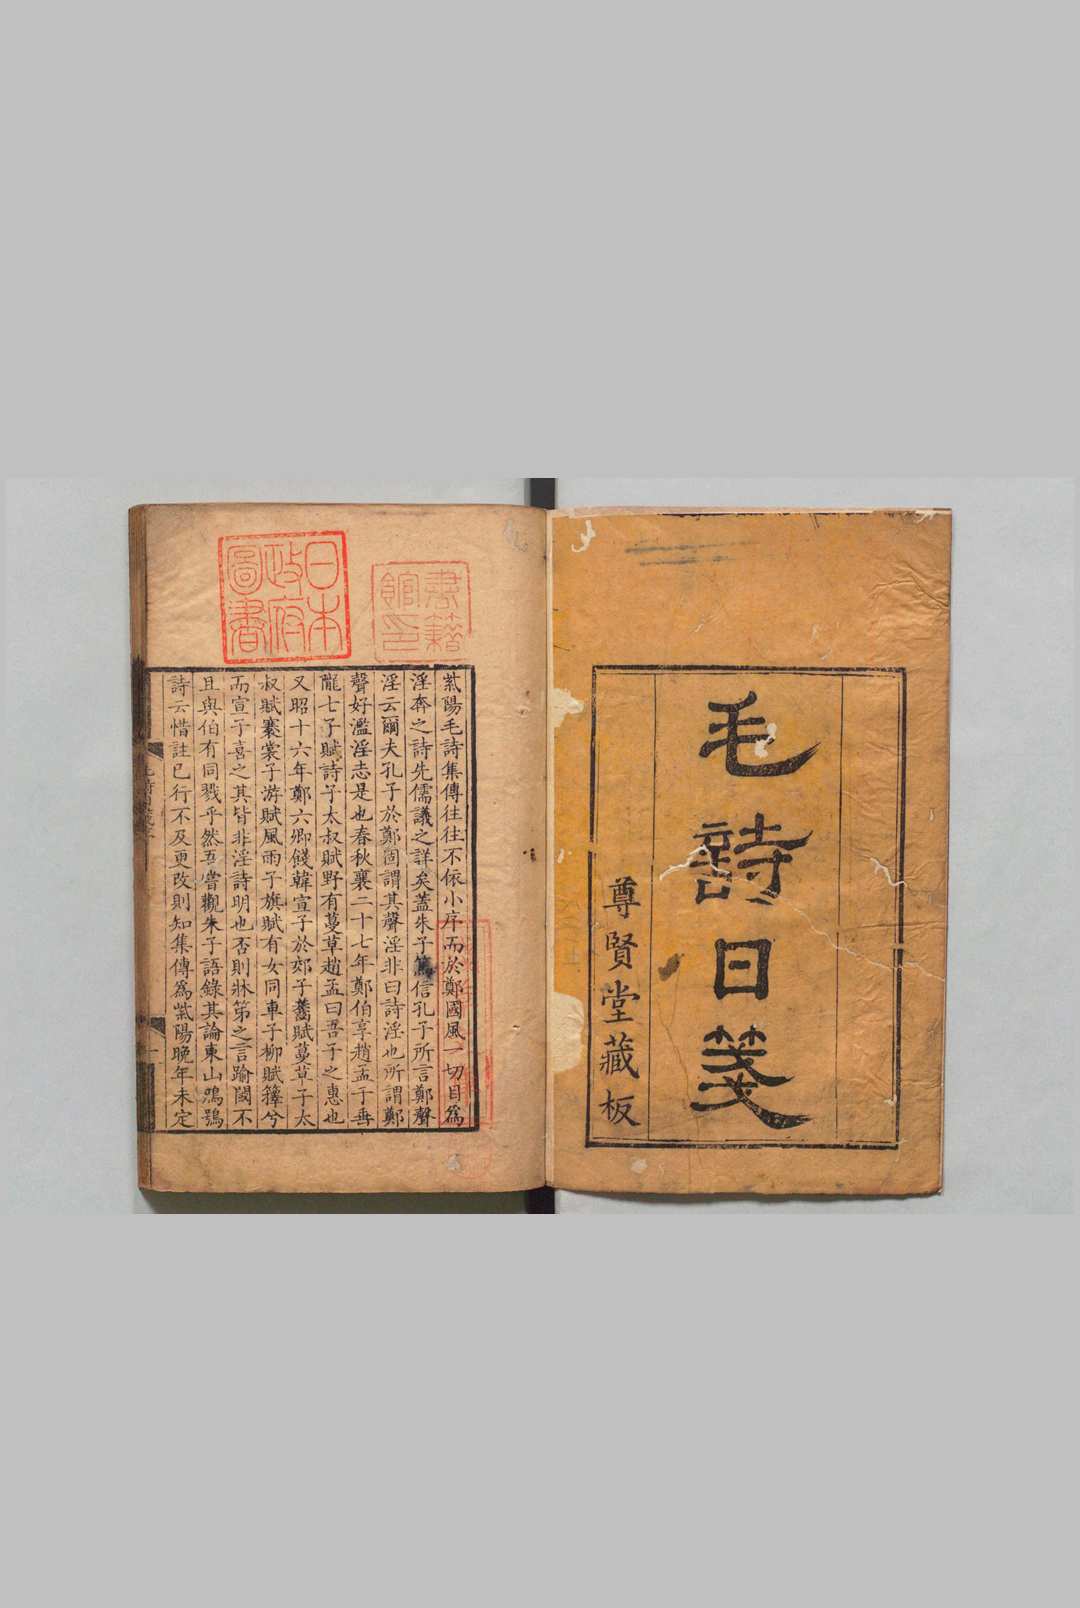 毛詩日箋
尊賢堂藏板
日本政府圖書
書籍館印
紫陽毛詩集傳往往不依小序而於鄭國風一切目為
淫奔之詩先儒議之詳矣蓋朱子篤信孔子所言鄭聲
淫云爾夫孔子於鄭固謂其聲淫非曰詩淫也所謂鄭
聲好濫淫志是也春秋襄二十七年鄭伯享趙孟于垂
隴七子賦詩子太叔賦野有蔓草趙孟曰吾子之惠也
又昭十六年鄭六卿餞韓宣子於郊子齹賦蔓草子太
叔賦褰裳子游賦風雨子旗賦有女同車子柳賦籜兮
而宣子喜之其皆非淫詩明也否則牀笫之言踰閾不
且與伯有同戮乎然吾嘗觀朱子語錄其論東山鴟鴞
詩云惜註已行不及更改則知集傳為紫陽晚年未定